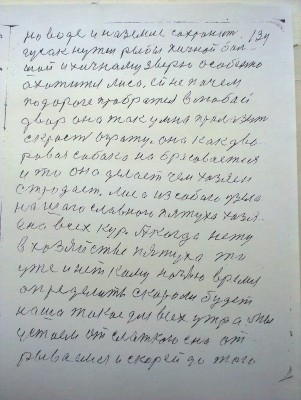 на воде и на земле сохранит 134
гусак нужен рыбы хичной бал
шой и хичнаму зверю особенно
охотится лиса, ей не почем
подороге пробратся в любой
двор она так умна пролизит
скрость ограту. она как дво
ровая собака на брасоваится
и то она делает чем хозяен
страдает. лиса из собаго узела
нашаго славного пятуха хозя-
ена всех кур. А когда нету
в хозяйстве пятуха то
уже и нет каму ночью время
определить скароли будет
наша такое для всех утра мы
устаем от слаткого сна от
рываемся и скорей до того